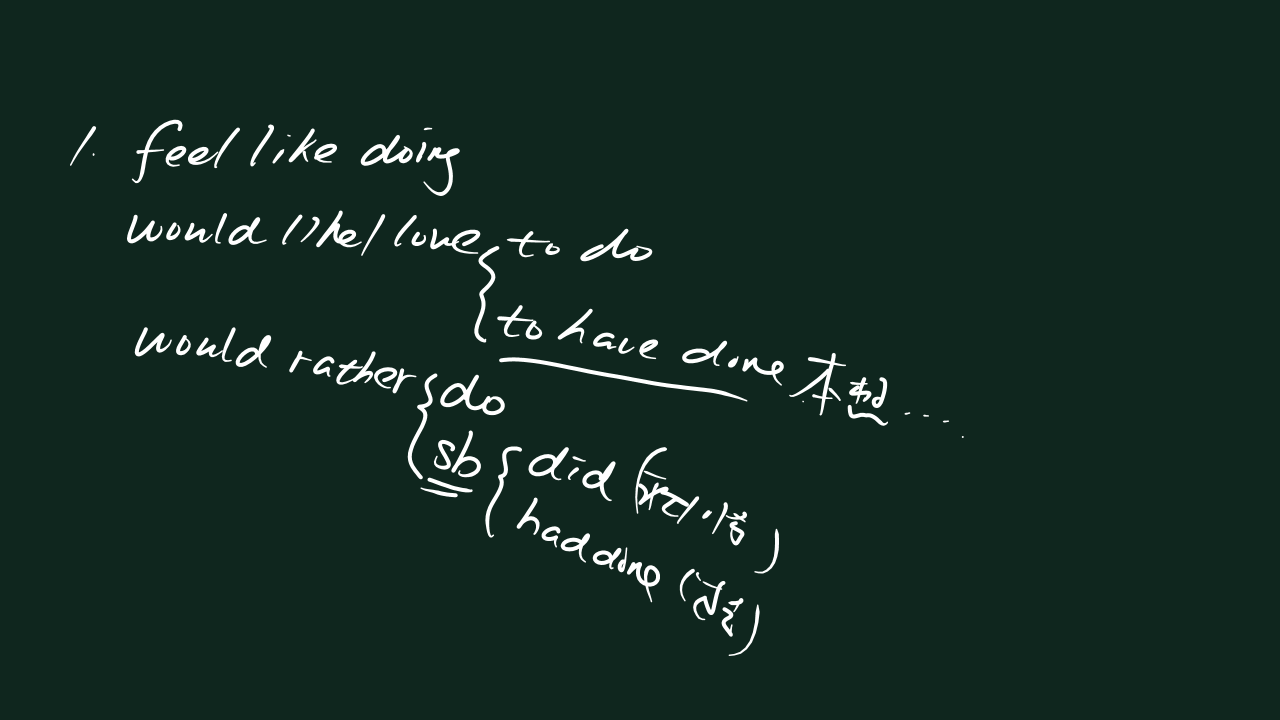 1. feel like doing
would like/love { to do
to have done 本想....
would rather { do
sb { did (
had done (过去)